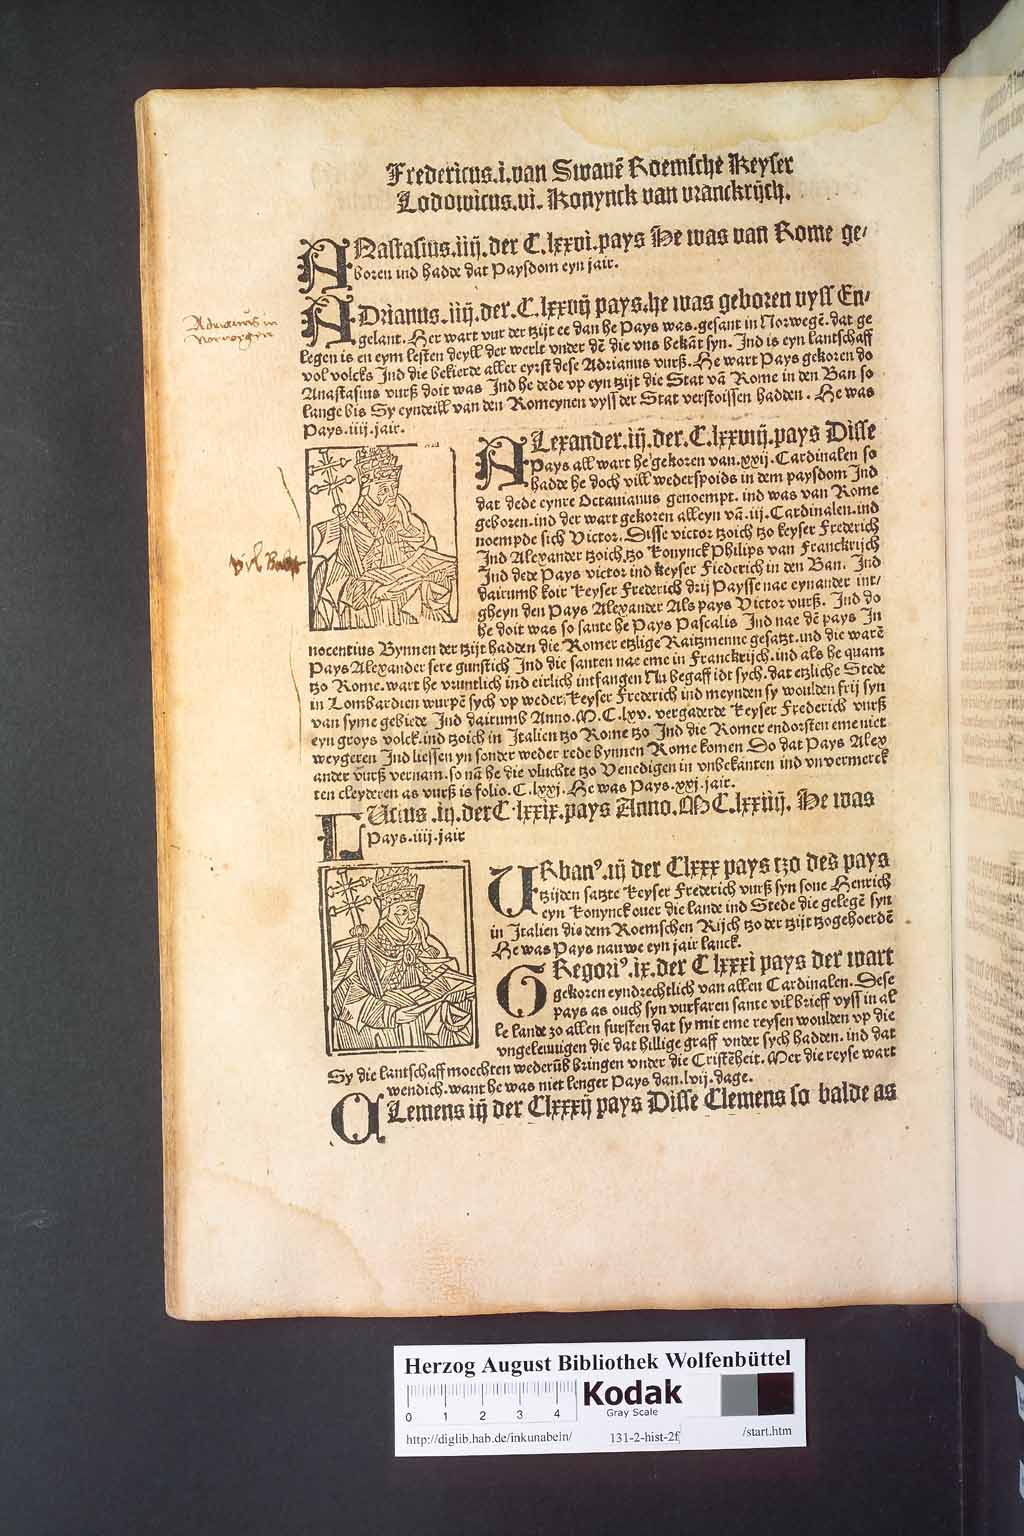 Fredericus.i.van Swauē Roemsche Keyser
Lodowicus.vi. Konynck van vranckrijch.
ANastasius.iiij.der C.lxxvi.pays He was van Rome ge-
boren ind hadde dat Paysdom eyn jair.
ADrianus.iiij.der.C.lxxvij pays.he was geboren vyss En-
gelant. Her wart vur der tzijt ee dan he Pays was.gesant in Norwegē.dat ge
legen is en eym lesten deyll der werlt vnder dē die vns bekāt syn. Ind is eyn lantschaff
vol volcks Ind die bekierde aller eyrst dese Adrianus vurß. He wart Pays gekoren do
Anastasius vurß doit was Ind he dede vp eyn tzijt die Stat vā Rome in den Ban so
lange bis Sy eyndeill van den Romeynen vyss der Stat verstoissen hadden. He was
Pays.iiij.jair.
Aduanus in
Norwegen
ALexander.iij.der.C.lxxviij.pays Disse
Pays all wart he gekoren van.xxij.Cardinalen so
hadde he doch vill wederspoids in dem paysdom Ind
dat dede eynre Octauianus genoempt. ind was van Rome
geboren.ind der wart gekoren alleyn vā.iij.Cardinalen.ind
noempde sich Victor. Disse victor tzoich tzo keyser Frederich
Ind Alexander tzoich.tzo Konynck Philips van Franckrijch
Ind dede Pays victor ind keyser Frederich in den Ban. Ind
dairumb koir Keyser Frederich drij Paysse nae eynander int-
gheyn den Pays Alexander Als pays Victor vurß. Ind do
he doit was so sante he Pays Pascalis Ind nae dē pays In
nocentius Bynnen der tzijt hadden die Romer etzlige Raitzmenne gesatzt.ind die warē
Pays Alexander sere gunstich Ind die santen nae eme in Franckrijch.ind als he quam
tzo Rome.wart he vruntlich ind eirlich intfangen Nu begaff idt sych.dat etzliche Stede
in Lombardien wurpē sych vp weder.Keyser Frederich ind meynden sy woulden frij syn
van syme gebiede Ind dairumb Anno.M.C.lxv. vergaderde Keyser Frederich vurß
eyn groys volck.ind tzoich in Italien tzo Rome tzo Ind die Romer endorsten eme niet
weygeren Ind liessen yn sonder weder rede bynnen Rome komen Do dat Pays Alex
ander vurß vernam.so nā he die vluchte tzo Venedigen in vnbekanten ind vnvermerck
ten cleyderen as vurß is folio.C.lxxj. He was Pays.xxj.jair.
LUcius.iij.der C.lxxix.pays Anno.M C.lxxiiij. He was
Pays.iiij.jair
URbanꝰ.iij der Clxxx pays tzo des pays
tzijden satzte Keyser Frederich vurß syn sone Henrich
eyn Konynck ouer die lande ind Stede die gelegē syn
in Italien die dem Roemschen Rijch tzo der tzijt tzogehoerdē
He was Pays nauwe eyn jair lanck.
GRegoriꝰ.ix.der C lxxxi pays der wart
gekoren eyndrechtlich van allen Cardinalen. Dese
pays as ouch syn vurfaren sante vil brieff vyss in al
le lande zo allen fursten dat sy mit eme reysen woulden vp die
vngeleuuigen die dat hillige graff vnder sych hadden. ind dat
Sy die lantschaff moechten wederūb bringen vnder die Cristēheit. Mer die reyse wart
wendich. want he was niet lenger Pays dan.lvij.dage.
CLemens iij der Clxxxij pays Disse Clemens so balde as
Herzog August Bibliothek Wolfenbüttel
0 1 2 3 4
Kodak
Gray Scale
http://diglib.hab.de/inkunabeln/ 131-2-hist-2f /start.htm